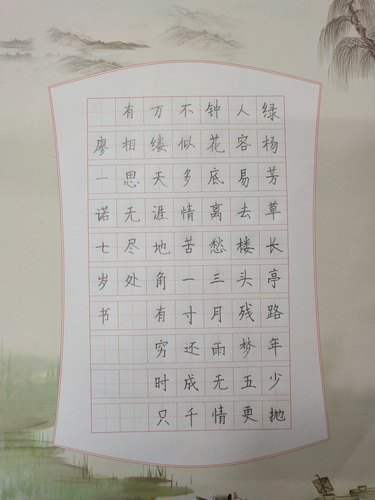 绿杨芳草长亭路年少抛
人容易去楼头残梦五更
钟花底离愁三月雨无情
不似多情苦一寸还成千
万缕天涯地角有穷时只
有相思无尽处
廖一诺七岁书